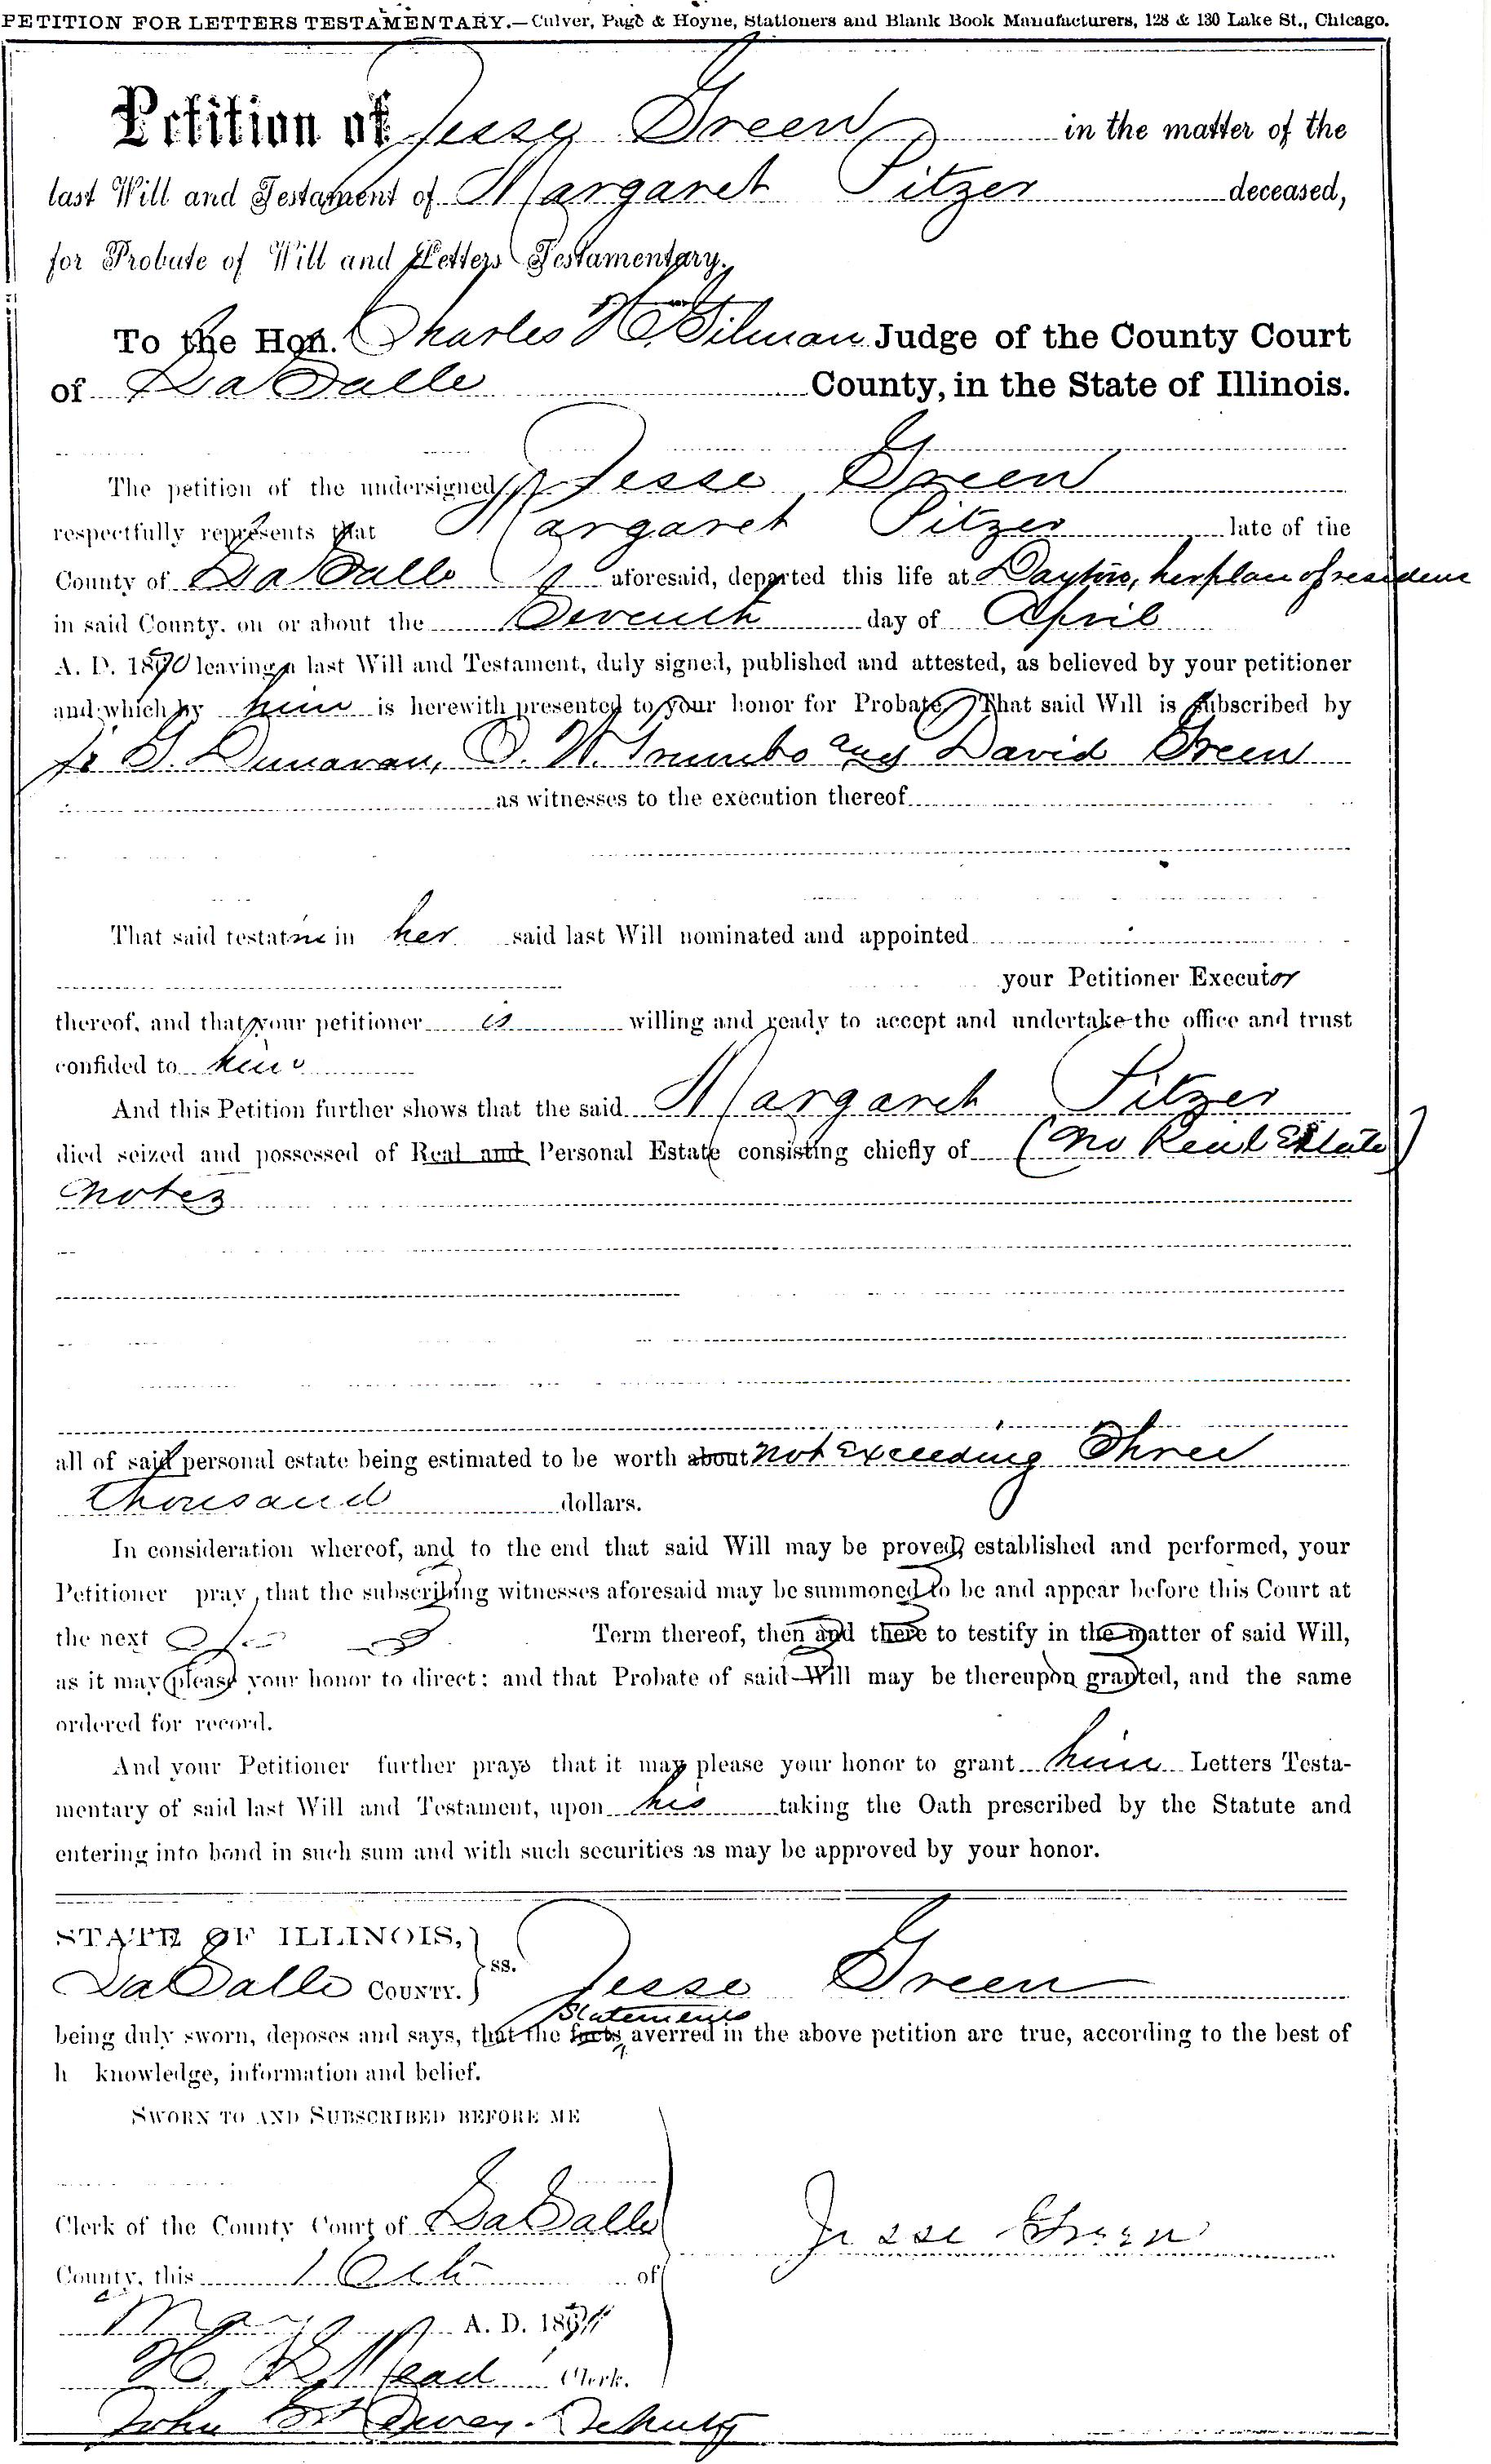 PETITION FOR LETTERS TESTAMENTARY.—Culver, Page & Hoyne, Stationers and Blank Book Manufacturers, 128 & 130 Lake St., Chicago.
Petition of Jesse Green in the matter of the
last Will and Testament of Margaret Pitzer deceased,
for Probate of Will and Letters Testamentary.
To the Hon. Charles H. Gilman Judge of the County Court
of LaSalle County, in the State of Illinois.
The petition of the undersigned, Jesse Green
respectfully represents that Margaret Pitzer late of the
County of LaSalle aforesaid, departed this life at Dayton, her place of residence
in said County, on or about the Seventh day of April
A. D. 1870 leaving a last Will and Testament, duly signed, published and attested, as believed by your petitioner
and which by him is herewith presented to your honor for Probate. That said Will is subscribed by
G. Dunavan, O. W. Trumbo and David Green
as witnesses to the execution thereof
That said testatrix in her said last Will nominated and appointed
your Petitioner Executor
thereof, and that your petitioner is willing and ready to accept and undertake the office and trust
confided to him
And this Petition further shows that the said Margaret Pitzer
died seized and possessed of Real and Personal Estate consisting chiefly of (no Real Estate)
notes
all of said personal estate being estimated to be worth about not exceeding Three
thousand dollars.
In consideration whereof, and to the end that said Will may be proved, established and performed, your
Petitioner pray, that the subscribing witnesses aforesaid may be summoned to be and appear before this Court at
the next Term thereof, then and there to testify in the matter of said Will,
as it may please your honor to direct; and that Probate of said Will may be thereupon granted, and the same
ordered for record.
And your Petitioner further prays that it may please your honor to grant him Letters Testa-
mentary of said last Will and Testament, upon his taking the Oath prescribed by the Statute and
entering into bond in such sum and with such securities as may be approved by your honor.
STATE OF ILLINOIS,
LaSalle COUNTY. } ss. Jesse Green
statements
being duly sworn, deposes and says, that the facts averred in the above petition are true, according to the best of
h knowledge, information and belief.
SWORN TO AND SUBSCRIBED BEFORE ME
Clerk of the County Court of LaSalle
Jesse Green
County, this 10th of
May A. D. 187
Mead Clerk.
John Deputy